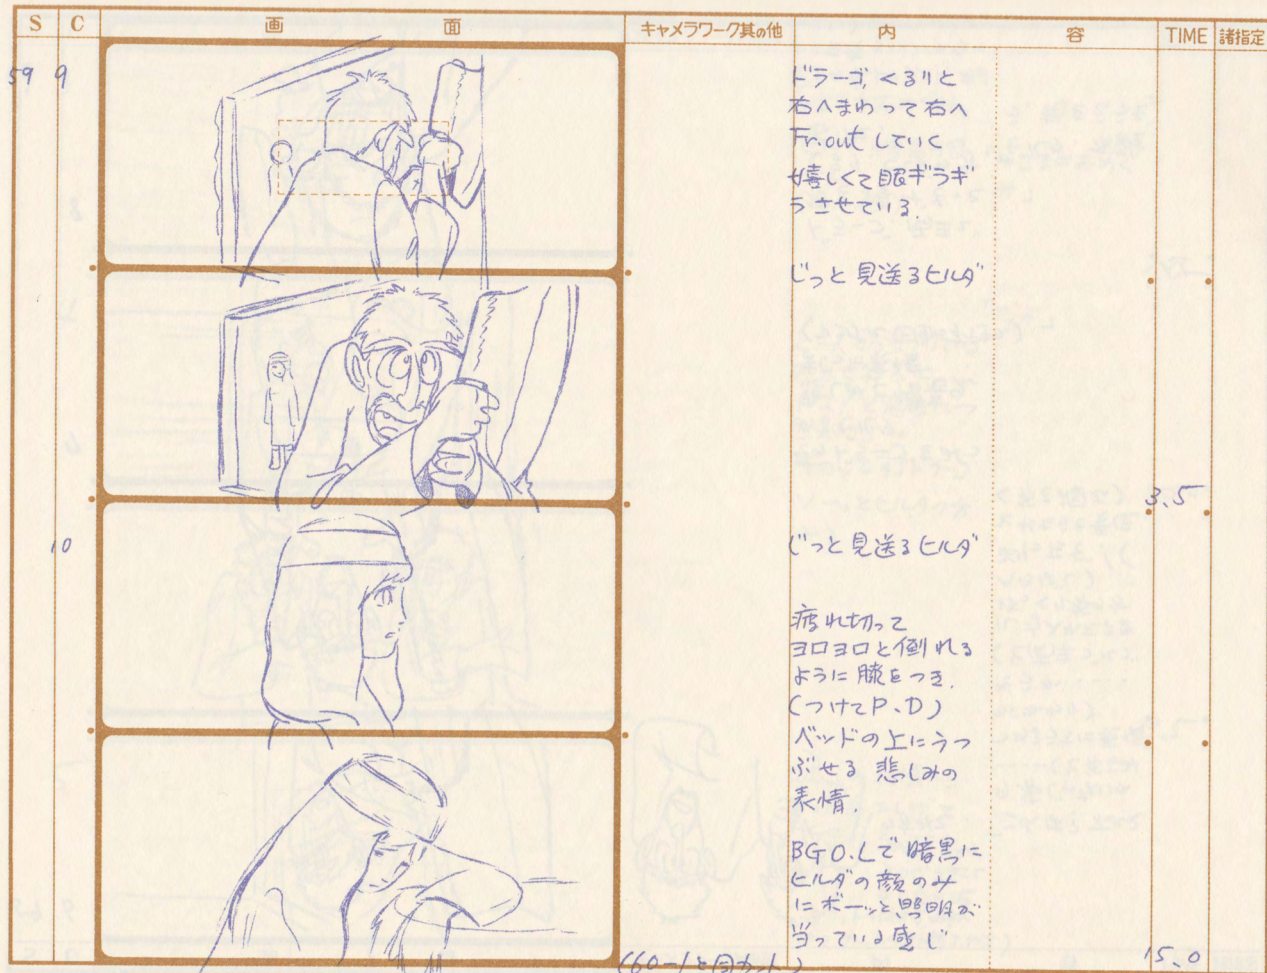 S C 画 面 キャメラワーク其の他 内 容 TIME 諸指定
59 9
ドラーゴ、くるりと
右へまわって右へ
Fr.out していく
嬉しくて眼ギラギ
ラさせている。
じっと見送るヒルダ
3.5
10
じっと見送るヒルダ
疲れ切って
ヨロヨロと倒れる
ように膝をつき、
(つけてP.D)
ベッドの上にうつ
ぶせる 悲しみの
表情。
BG O.Lで暗黒に
ヒルダの顔のみ
にボーッと照明が
当っている感じ
(60-1と同カット)
15.0